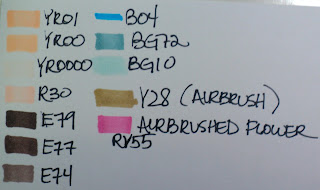 YR01
YR00
YR0000
R30
E79
E77
E74
B04
BG72
BG10
Y28 (AIRBRUSH)
AIRBRUSHED FLOWER
RV55